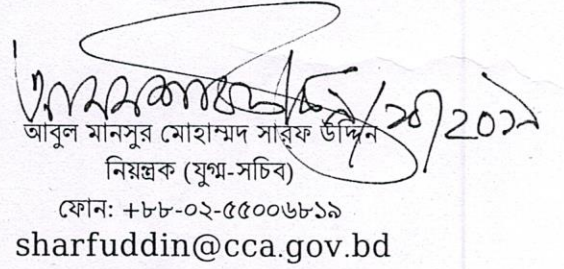 আবুল মানসুর মোহাম্মদ সারফ উদ্দিন
নিয়ন্ত্রক (যুগ্ম-সচিব)
ফোন: +৮৮-০২-৫৫০০৬৮১৯
sharfuddin@cca.gov.bd